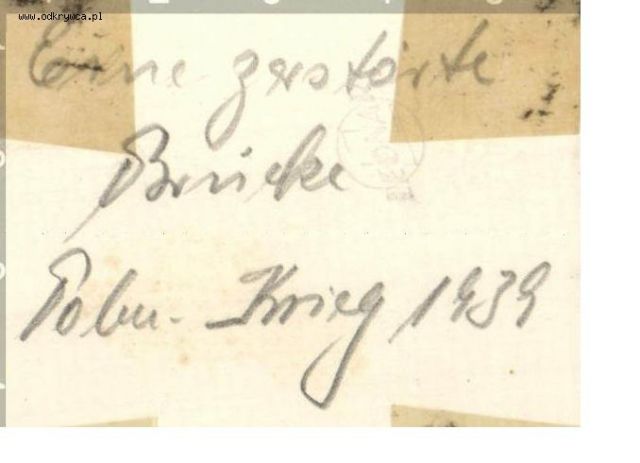 www.odkrywca.pl
Eine zerstörte
Brücke
Poln. Krieg 1939